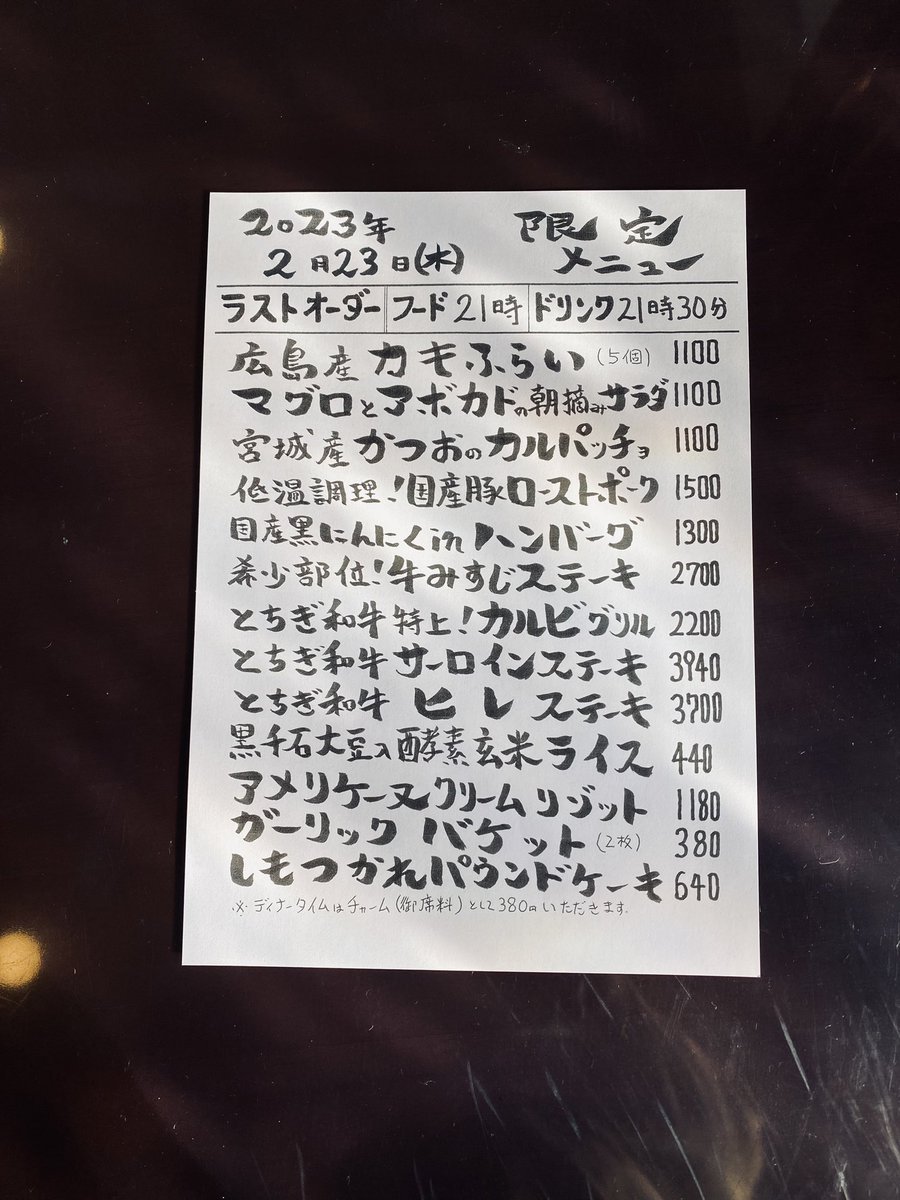 2023年 限定
2月23日(木) メニュー
ラストオーダー フード21時 ドリンク21時30分
広島産カキふらい(5個) 1100
マグロとアボカドの朝摘みサラダ 1100
宮城産かつおのカルパッチョ 1100
低温調理!国産豚ローストポーク 1500
国産黒にんにくinハンバーグ 1300
希少部位!牛みすじステーキ 2700
とちぎ和牛特上!カルビグリル 2200
とちぎ和牛サーロインステーキ 3940
とちぎ和牛ヒレステーキ 3700
黒千石大豆入酵素玄米ライス 440
アメリケーヌクリームリゾット 1180
ガーリックバケット(2枚) 380
しもつかれパウンドケーキ 640
※ディナータイムはチャーム(御席料)として380円いただきます。